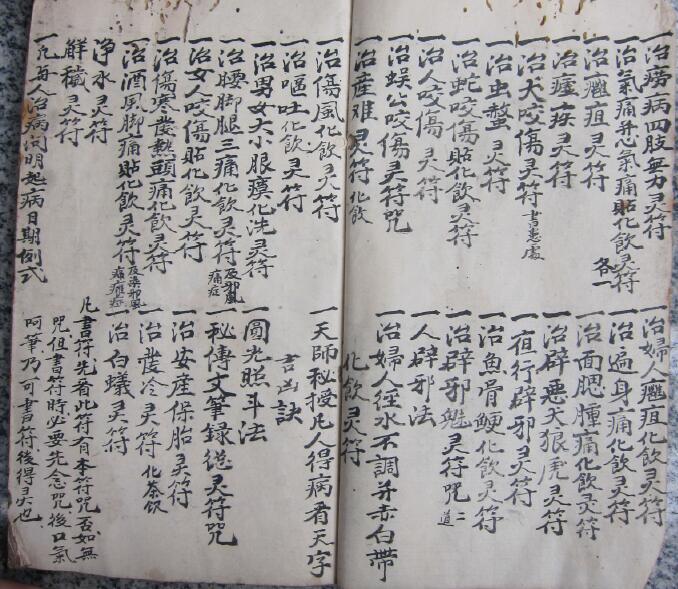 一治痨病四肢無力灵符
一治氣痛并心氣痛貼化飲灵符 各一
一治癰疽灵符
一治瘧疾灵符
一治犬咬傷灵符 書患處
一治虫螫灵符
一治蛇咬傷貼化飲灵符
一治人咬傷灵符
一治蜈公咬傷灵符咒
一治産难灵符 化飲
一治婦人癰疽化飲灵符
一治遍身痛化飲灵符
一治面腮腫痛化飲灵符
一治辟悪犬狼虎灵符
一夜行辟邪灵符
一治魚骨鯁化飲灵符
一治辟邪魁灵符咒 二道
一人辟邪法
一治婦人径水不調并赤白帶
化飲灵符
一治傷風化飲灵符
一治嘔吐化飲灵符
一治男女大小眼瘼化洗灵符
一治腰脚腿三痛化飲灵符 及邪風痛症
一治女人咬傷貼化飲灵符
一治傷寒發熱頭痛化飲灵符
一治酒風脚痛貼化飲灵符
净水灵符
解穢灵符
一凡与人治病问明起病日期例式
一天師秘授凡人得病看天字
吉凶訣
一圓光照斗法
一秘傳文筆録從灵符咒
一治安産保胎灵符
一治發冷灵符 化茶飲
一治白蟻灵符
凡書符先看此符有本符咒否如無
咒但書符時必要先念咒後口氣
呵筆乃可書符後得灵也